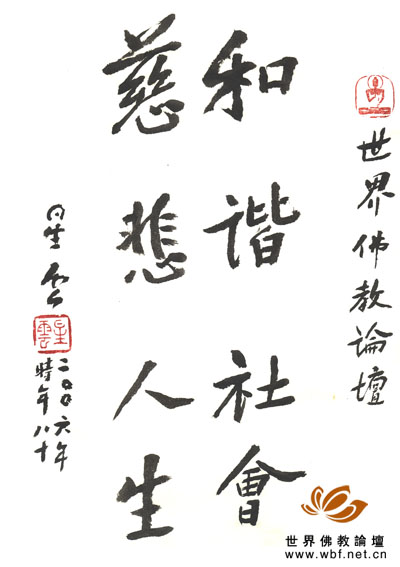 世界佛教論壇
和諧社會
慈悲人生
星云
星雲
二〇〇六年
時年八十
世界佛教論壇
www.wbf.net.cn